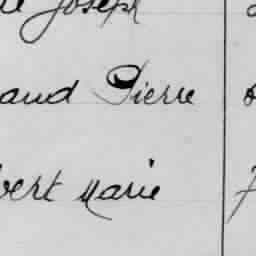 Joseph
aud Pierre
bert Marie